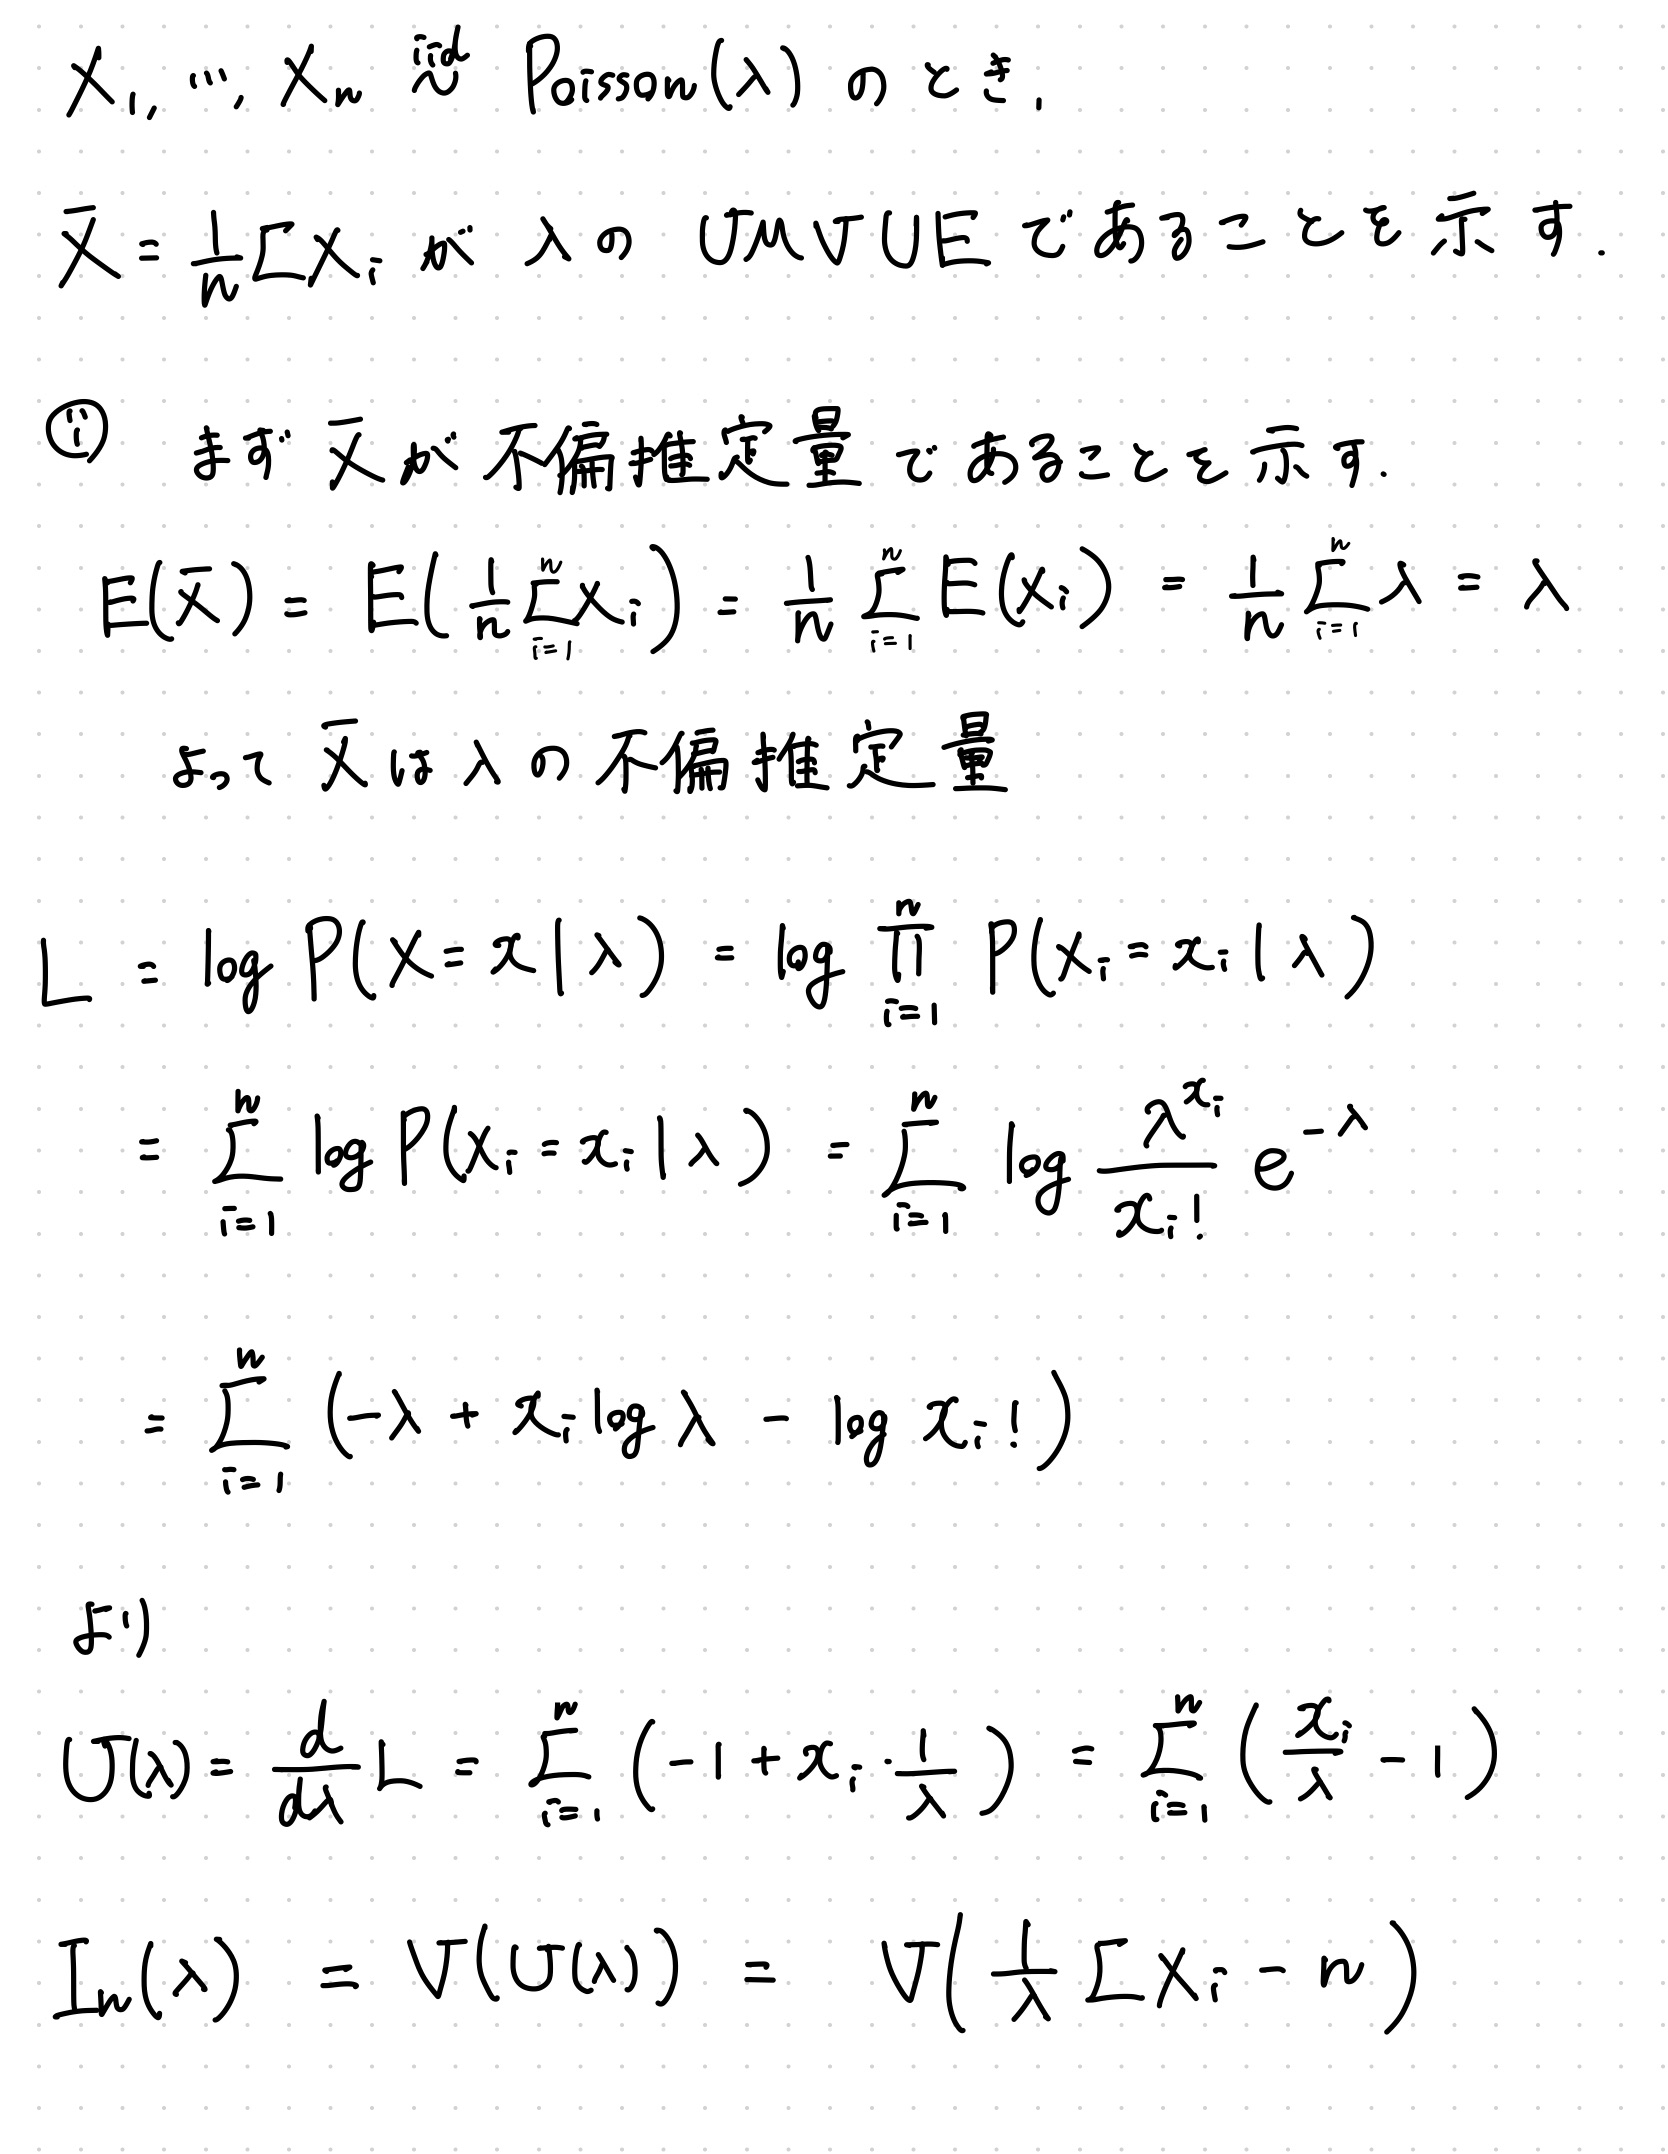 X₁, …, Xₙ iid ~ Poisson(λ) のとき,
X̄ = 1/n ΣXᵢ が λの UMVUE であることを示す.
∵ まず X̄ が 不偏推定量 であることを示す.
E(X̄) = E(1/n Σᵢ₌₁ⁿ Xᵢ) = 1/n Σᵢ₌₁ⁿ E(Xᵢ) = 1/n Σᵢ₌₁ⁿ λ = λ
よって X̄ は λ の 不偏推定量
L = log P(X = x | λ) = log Πᵢ₌₁ⁿ P(Xᵢ = xᵢ | λ)
= Σᵢ₌₁ⁿ log P(Xᵢ = xᵢ | λ) = Σᵢ₌₁ⁿ log λ^xᵢ / xᵢ! e^-λ
= Σᵢ₌₁ⁿ (-λ + xᵢ log λ - log xᵢ!)
より
U(λ) = d/dλ L = Σᵢ₌₁ⁿ (-1 + xᵢ · 1/λ) = Σᵢ₌₁ⁿ (xᵢ/λ - 1)
Iₙ(λ) = V(U(λ)) = V(1/λ ΣXᵢ - n)